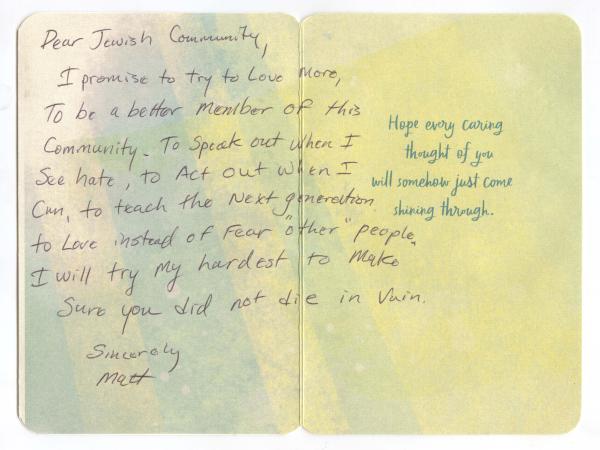 Dear Jewish Community,
I promise to try to Love More,
To be a better Member of this
Community. To Speak out when I
See hate, to Act out when I
Can, to teach the Next generation
to Love instead of Fear "other" people.
I will try My hardest to Make
Sure you did not die in Vain.
Sincerely
Matt
Hope every caring
thought of you
will somehow just come
shining through.